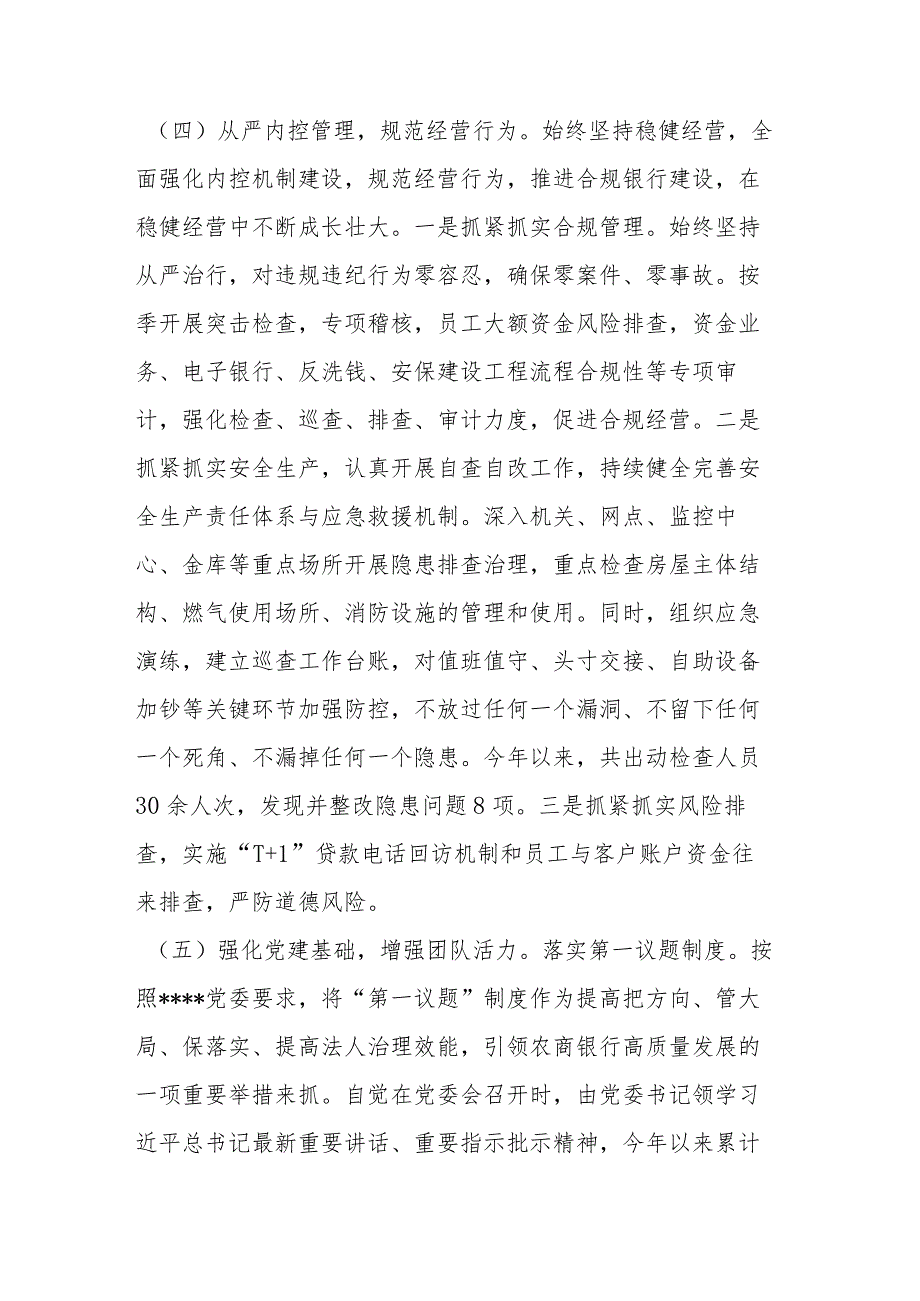 （四）从严内控管理，规范经营行为。始终坚持稳健经营，全
面强化内控机制建设，规范经营行为，推进合规银行建设，在
稳健经营中不断成长壮大。一是抓紧抓实合规管理。始终坚持
从严治行，对违规违纪行为零容忍，确保零案件、零事故。按
季开展突击检查，专项稽核，员工大额资金风险排查，资金业
务、电子银行、反洗钱、安保建设工程流程合规性等专项审
计，强化检查、巡查、排查、审计力度，促进合规经营。二是
抓紧抓实安全生产，认真开展自查自改工作，持续健全完善安
全生产责任体系与应急救援机制。深入机关、网点、监控中
心、金库等重点场所开展隐患排查治理，重点检查房屋主体结
构、燃气使用场所、消防设施的管理和使用。同时，组织应急
演练，建立巡查工作台账，对值班值守、头寸交接、自助设备
加钞等关键环节加强防控，不放过任何一个漏洞、不留下任何
一个死角、不漏掉任何一个隐患。今年以来，共出动检查人员
30 余人次，发现并整改隐患问题 8 项。三是抓紧抓实风险排
查，实施“T+1”贷款电话回访机制和员工与客户账户资金往
来排查，严防道德风险。
（五）强化党建基础，增强团队活力。落实第一议题制度。按
照****党委要求，将“第一议题”制度作为提高把方向、管大
局、保落实、提高法人治理效能，引领农商银行高质量发展的
一项重要举措来抓。自觉在党委会召开时，由党委书记领学习
近平总书记最新重要讲话、重要指示批示精神，今年以来累计